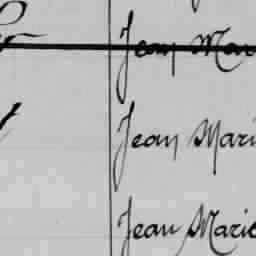 Jean Mari
Jean Mari
Jean Marie